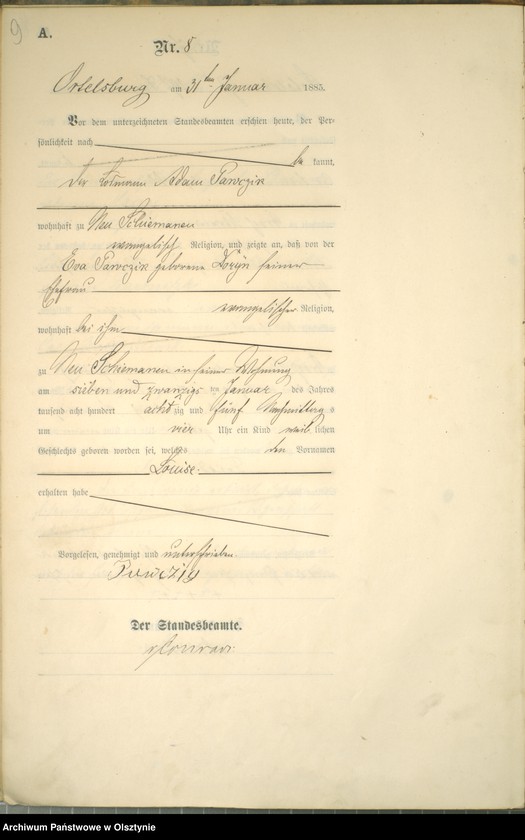 9
A.
Nr. 8
Ortelsburg am 31ten Januar 1885.
Vor dem unterzeichneten Standesbeamten erschien heute, der Per-
sönlichkeit nach
be kannt,
der Losmann Adam Pawczik
wohnhaft zu Neu Schiemanen
evangelisch Religion, und zeigte an, daß von der
Eva Pawczik geborene seiner
Ehefrau
evangelischer Religion,
wohnhaft bei ihm
zu Neu Schiemanen in seiner Wohnung
am sieben und zwanzigs ten Januar des Jahres
tausend acht hundert acht zig und fünf Nachmittag s
um vier Uhr ein Kind weib lichen
Geschlechts geboren worden sei, welches den Vornamen
Louise
erhalten habe
Vorgelesen, genehmigt und unterschrieben.
Der Standesbeamte.
Archiwum Państwowe w Olsztynie